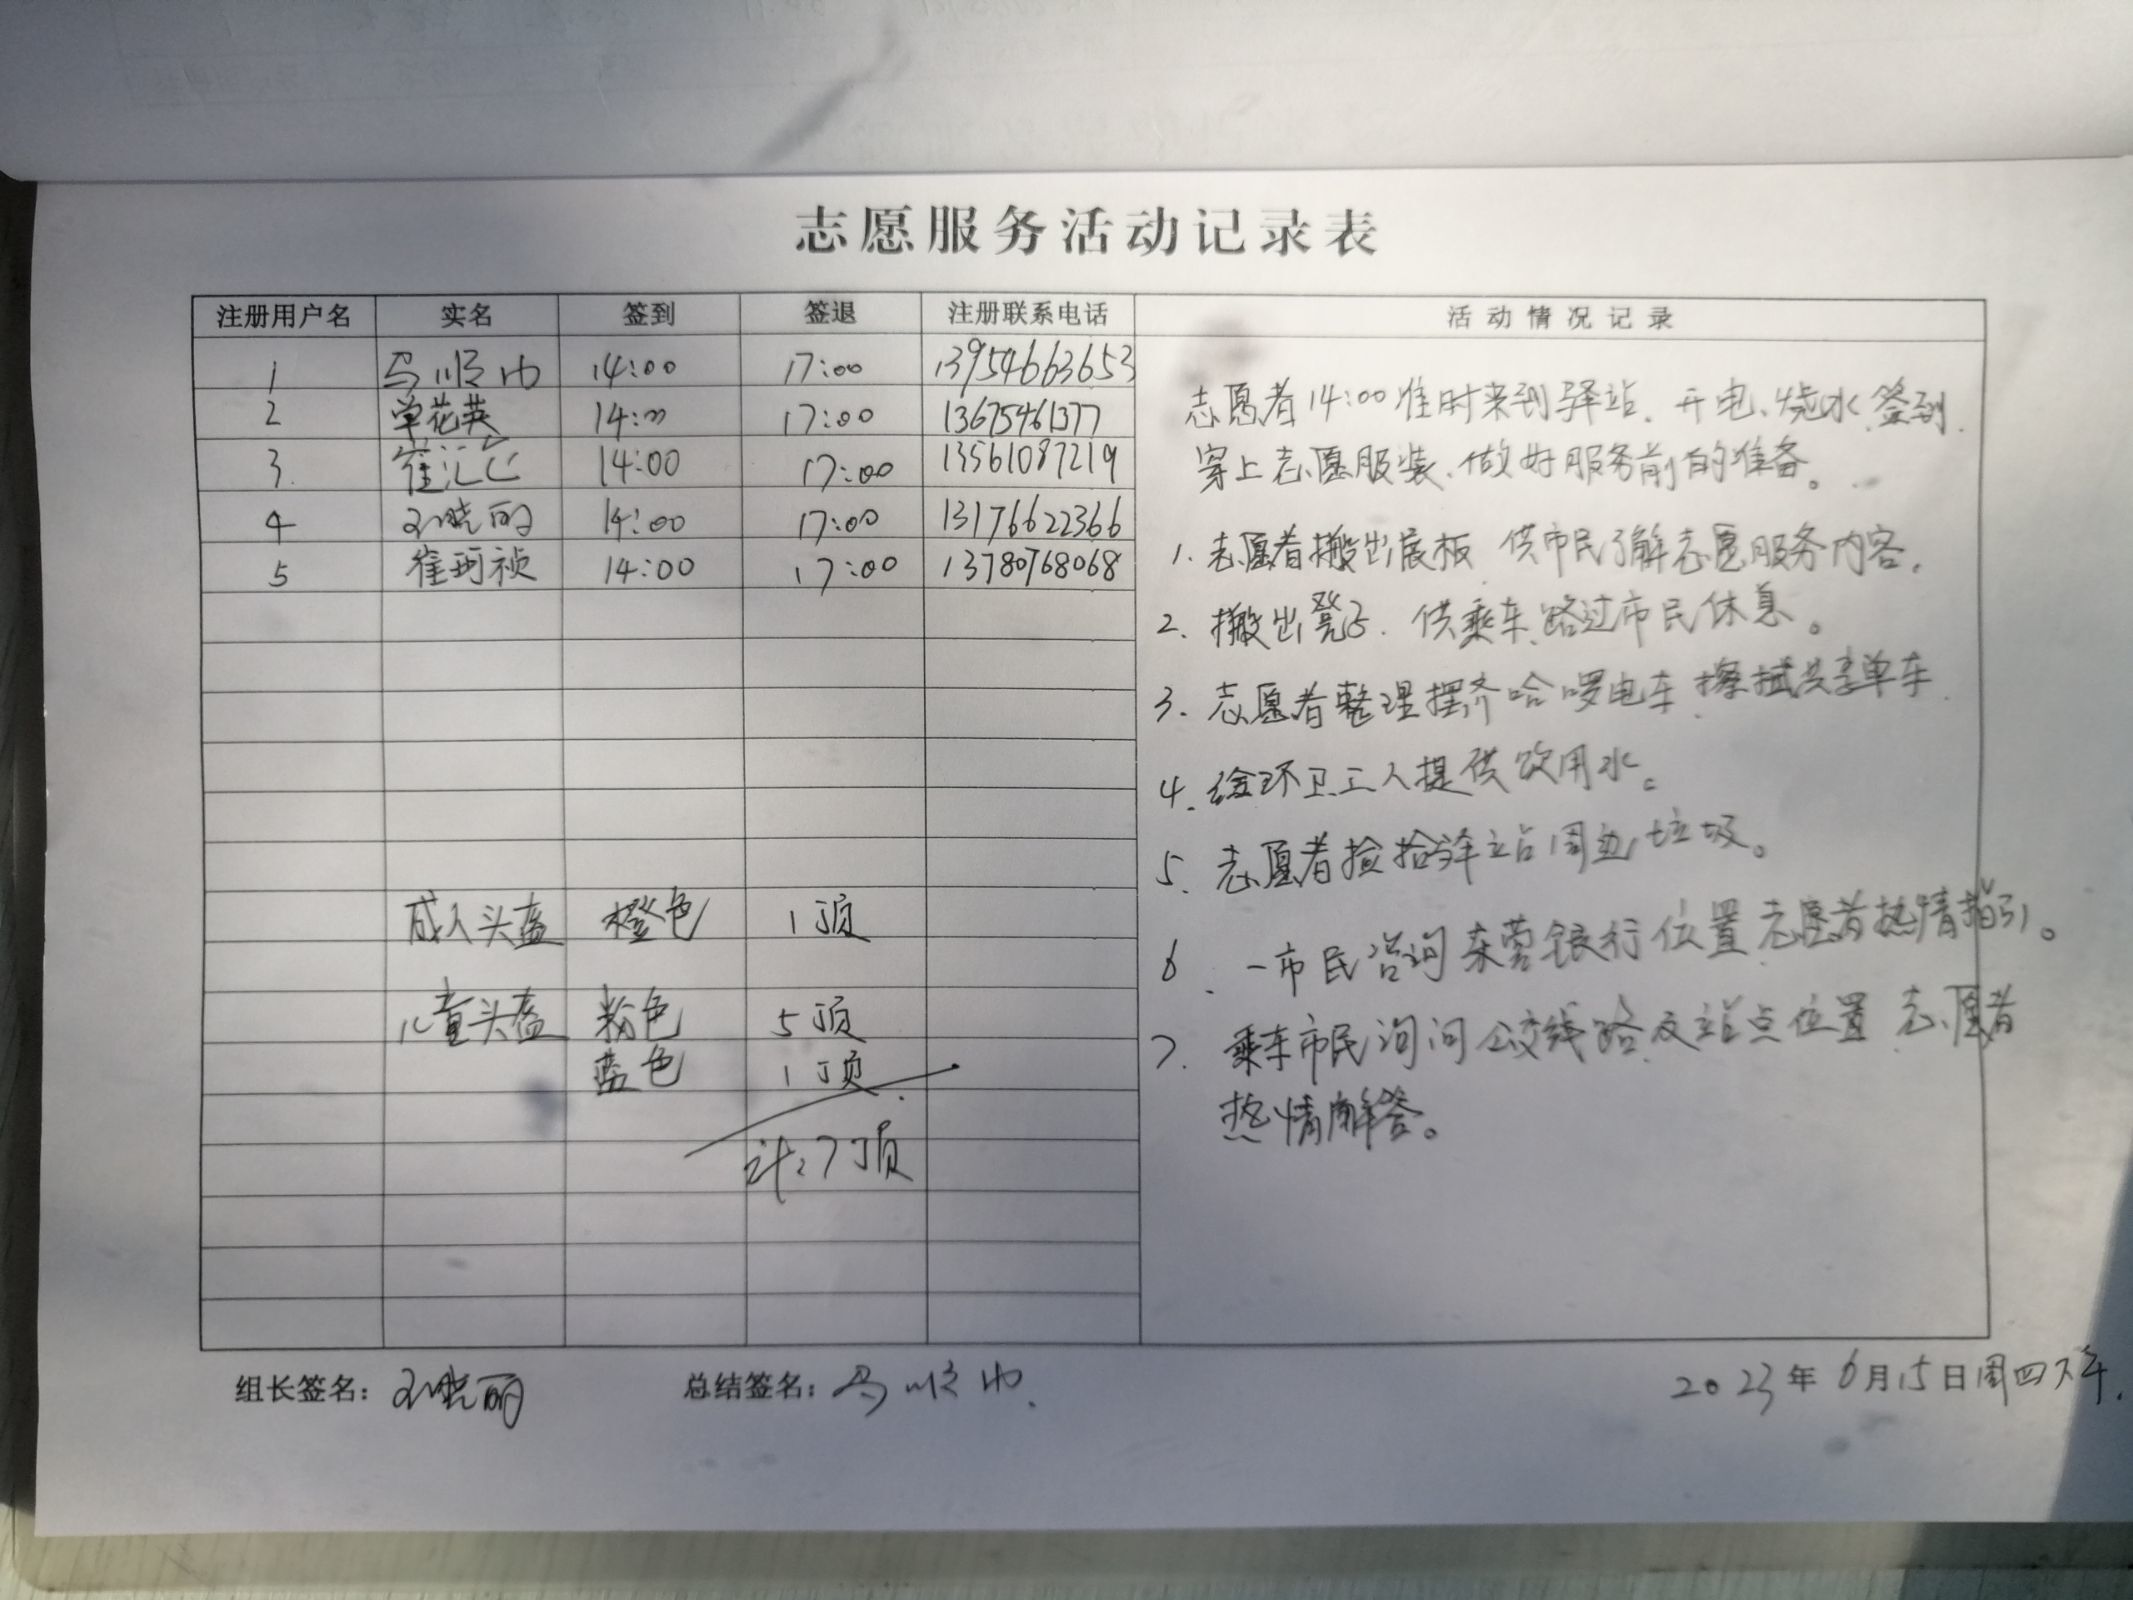 志愿服务活动记录表
注册用户名 实名 签到 签退 注册联系电话 活动情况记录
1 马顺巾 14:00 17:00 13954663653
2 单花英 14:00 17:00 13675461377
3 崔 14:00 17:00 13561087219
4 晓丽 14:00 17:00 13176622366
5 崔珂祯 14:00 17:00 13780768068
成人头盔 橙色 1顶
儿童头盔 粉色 5顶
蓝色 1顶
计:7顶
志愿者14:00准时来到驿站、开电、烧水、签到、
穿上志愿服装、做好服务前的准备。
1. 志愿者搬出展板 供市民了解志愿服务内容。
2. 搬出凳子、供乘车、路过市民休息。
3. 志愿者整理摆齐哈啰电车、擦拭共享单车
4. 给环卫工人提供饮用水。
5. 志愿者捡拾驿站周边垃圾。
6. 一市民咨询东营银行位置 志愿者热情指引。
7. 乘车市民询问公交线路及站点位置 志愿者
热情解答。
组长签名: 晓丽 总结签名: 马顺巾 2023年6月15日周四下午